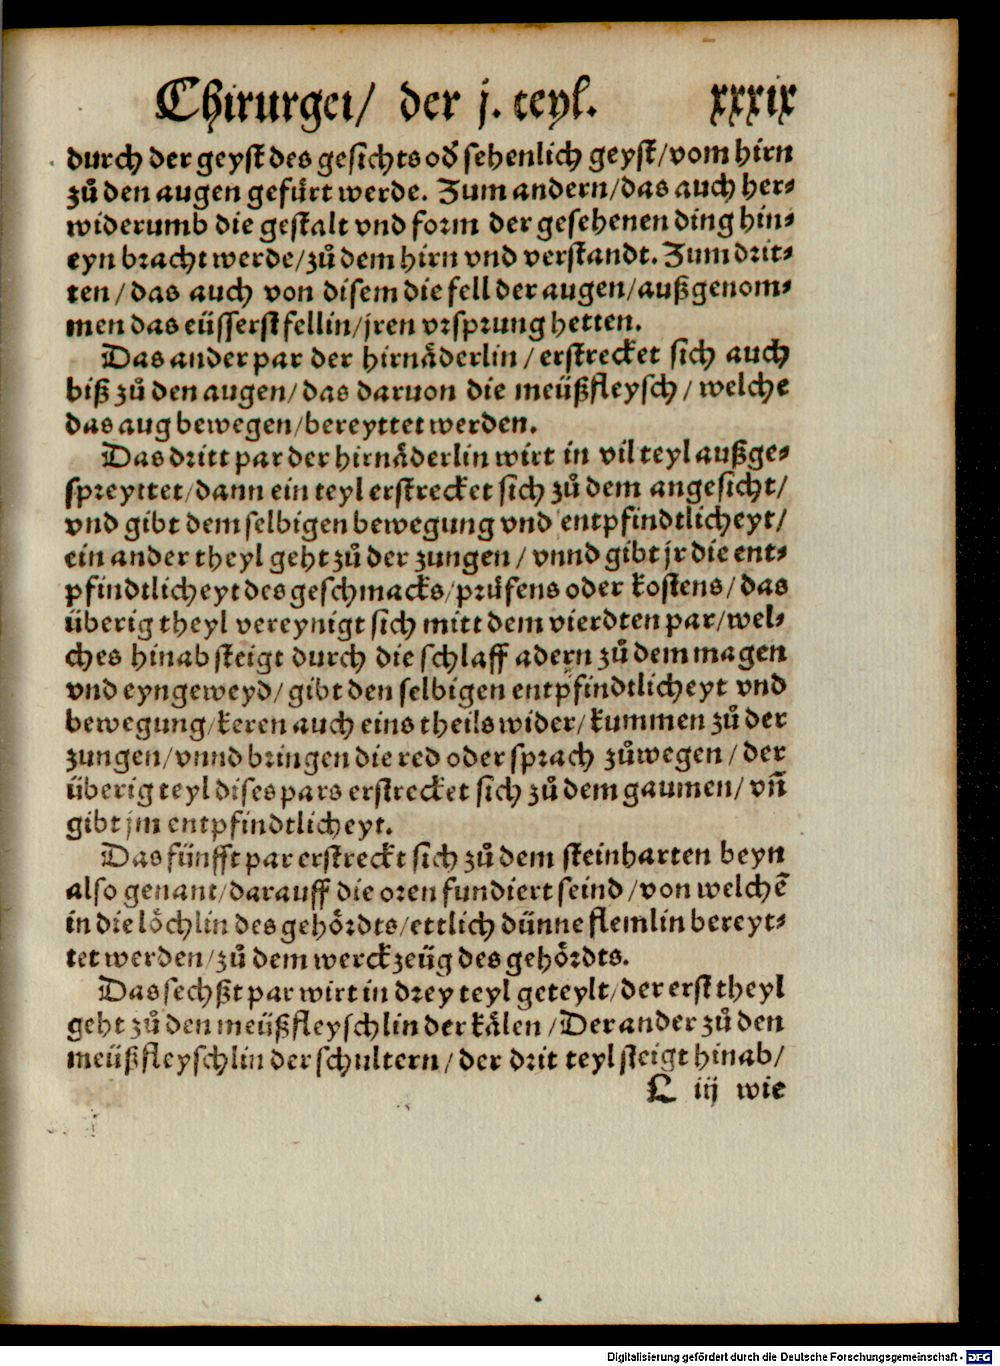 Chirurgei/ der j. teyl. xxxix
durch der geyst des gesichts od̕ sehenlich geyst/vom hirn
zů den augen gefürt werde. Zum andern/das auch her⸗
widerumb die gestalt vnd form der gesehenen ding hin⸗
eyn bracht werde/zů dem hirn vnd verstandt. Zum drit⸗
ten/das auch von disem die fell der augen/außgenom⸗
men das eüsserst fellin/jren vrsprung hetten.
Das ander par der hirnäderlin/erstrecket sich auch
biß zů den augen/das daruon die meüßfleysch/welche
das aug bewegen/bereyttet werden.
Das dritt par der hirnäderlin wirt in vil teyl außge⸗
spreyttet/dann ein teyl erstrecket sich zů dem angesicht/
vnd gibt dem selbigen bewegung vnd entpfindtlicheyt/
ein ander theyl geht zů der zungen/vnnd gibt jr die ent⸗
pfindtlicheyt des geschmacks/prüfens oder kostens/das
überig theyl vereynigt sich mitt dem vierdten par/wel⸗
ches hinab steigt durch die schlaff adern zů dem magen
vnd eyngeweyd/gibt den selbigen entpfindtlicheyt vnd
bewegung/keren auch eins theils wider/kummen zů der
zungen/vnnd bringen die red oder sprach zůwegen/der
überig teyl dises pars erstrecket sich zů dem gaumen/vñ
gibt jm entpfindtlicheyt.
Das fünfft par erstreckt sich zů dem steinharten beyn
also genant/darauff die oren fundiert seind/von welchẽ
in die löchlin des gehördts/ettlich dünne flemlin bereyt⸗
tet werden/zů dem werckzeüg des gehördts.
Das sechßt par wirt in drey teyl geteylt/der erst theyl
geht zů den meüßfleyschlin der kälen/Der ander zů den
meüßfleyschlin der schultern/der drit teyl steigt hinab/
L iij wie
Digitalisierung gefördert durch die Deutsche Forschungsgemeinschaft - DFG